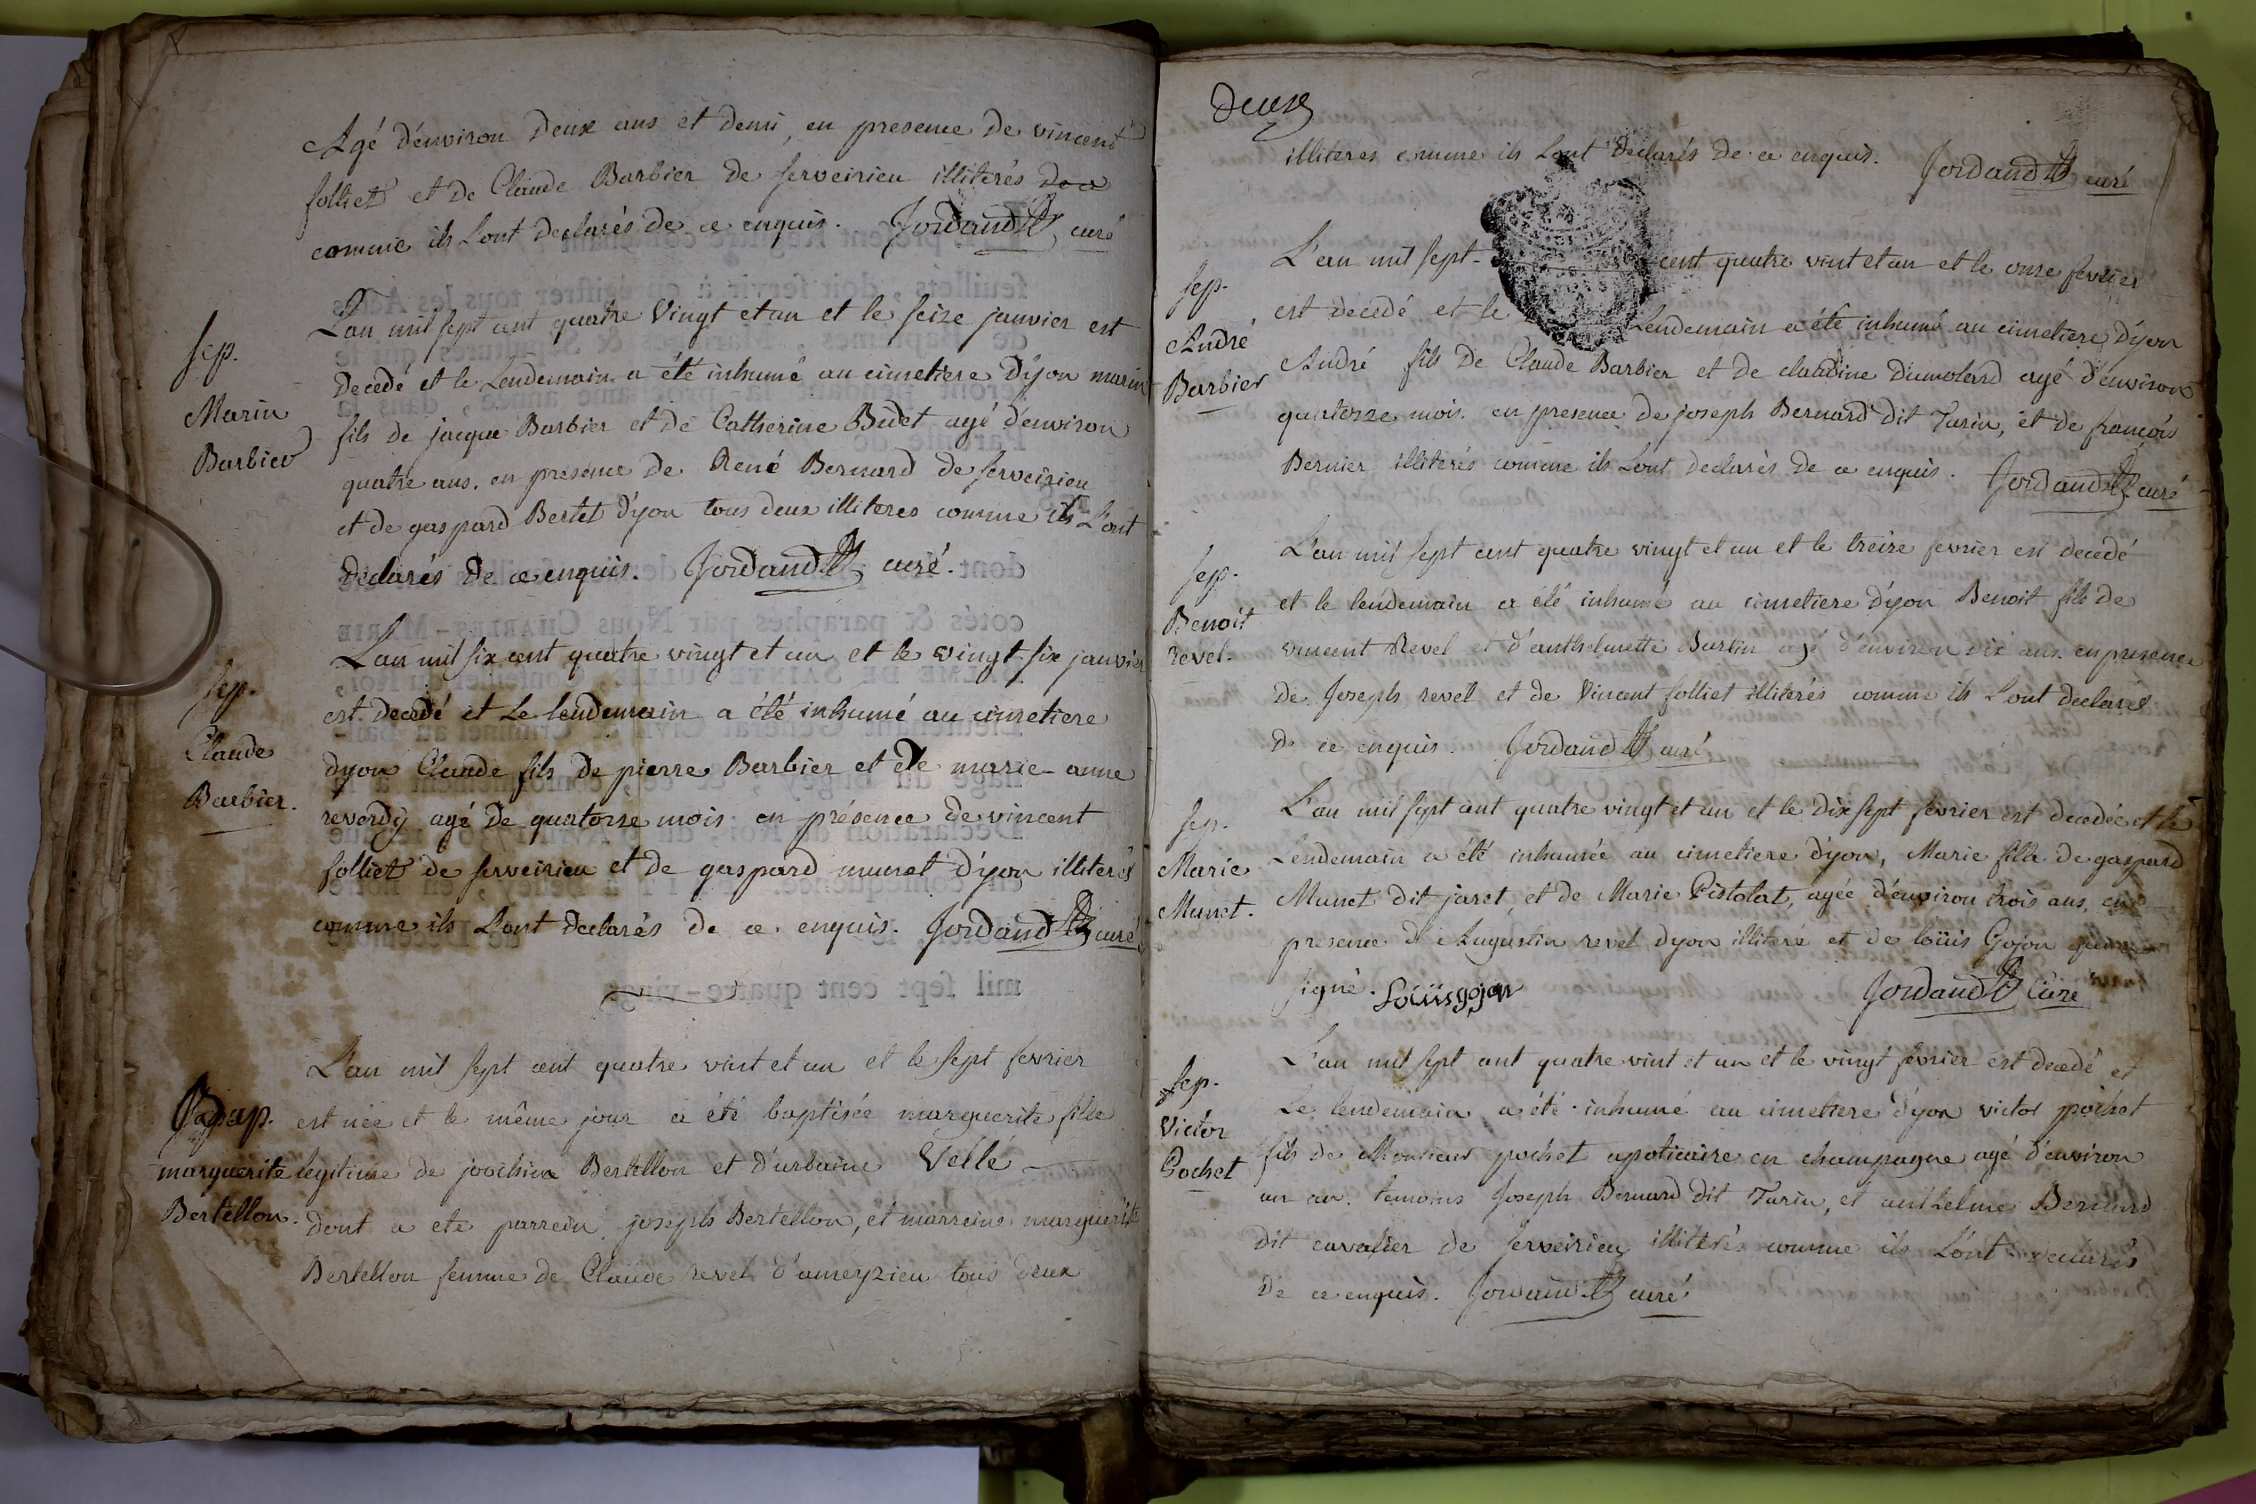 Agé d'environ deux ans et demi, en presence de vincent
folliet et de Claude Barbier de serveirieu illiterés
comme ils L'ont declarés de ce enquis. Jordand curé
Sep.
Marin
Barbier
L'an mil sept cent quatre Vingt et un et le seize janvier est
decedé et le Lendemain a été inhumé au cimetiere d'yon marin
fils de jacque Barbier et de Catherine Bidet agé d'environ
quatre ans. en presence de René Bernard de serveirieu
et de gaspard Bertet d'yon tous deux illiteres comme ils L'ont
declarés de ce enquis. Jordand curé.
Sep.
Claude
Barbier.
L'an mil six cent quatre vingt et un et le vingt-six janvier
est decedé et Le lendemain a été inhumé au cimetiere
dyon Claude fils de pierre Barbier et de marie-anne
reverdy agé de quatorze mois en présence de vincent
folliet de serveirieu et de gaspard munet d'yon illiterés
comme ils L'ont declarés de ce enquis. Jordand curé
Bap.
marguerite
Bertellon.
L'an mil sept cent quatre vint et un et le sept fevrier
est née et le même jour a été baptisée marguerite fille
legitime de joachim Bertellon et d'urbaine Vellé
dont a ete parrein joseph Bertellon, et marreine marguerite
Bertellon femme de Claude revel d'ameyzieu tous deux
deux
illiteres comme ils L'ont declarés de ce enquis. Jordand curé
Sep.
André
Barbier
L'an mil sept-cent quatre vint et un et le onze fevrier
est decedé et le Lendemain a été inhumé au cimetiere d'yon
André fils de Claude Barbier et de claudine Dumolard agé d'environ
quatorze mois. en presence de joseph Bernard dit Turin, et de françois
Bernier illiterés comme ils L'ont declarés de ce enquis. Jordand curé
Sep.
Benoit
revel.
L'an mil sept cent quatre vingt et un et le treize fevrier est decedé
et le lendemain a été inhumé au cimetiere d'yon Benoit fils de
vincent Revel et d'anthelmette Burtin agé d'environ dix ans. en presence
de Joseph revel et de Vincent folliet illiterés comme ils L'ont declarés
de ce enquis. Jordand curé
Sep.
Marie
Munet.
L'an mil sept cent quatre vingt et un et le dix sept fevrier est decedée et le
Lendemain a été inhumée au cimetiere d'yon, Marie fille de gaspard
Munet dit jaret et de Marie Pistolat, agée d'environ trois ans, en
presence d'Augustin revel dyon illiteré et de loüis Gojon qui a
signé. Loüis gojon Jordand Curé
Sep.
Victor
Pochet
L'an mil sept cent quatre vint et un et le vingt fevrier est decedé et
Le lendemain a été inhumé au cimetiere d'yon victor pochet
fils de Monsieur pochet apoticaire en champagne agé d'environ
un an. temoins Joseph Bernard dit Turin, et anthelme Bernard
dit cavalier de serveirieu illiterés comme ils L'ont declarés
de ce enquis. Jordand curé